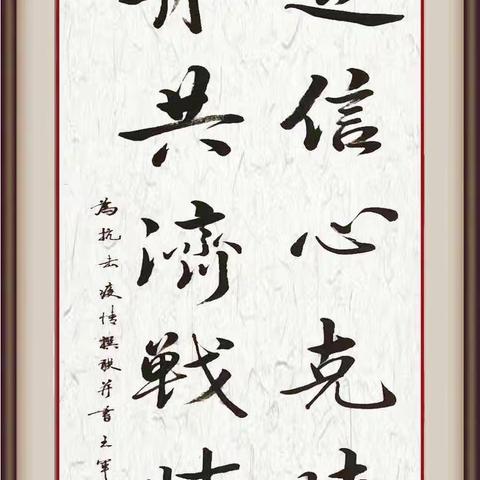 信心克
共濟戰
為抗击疫情撰联并書王軍